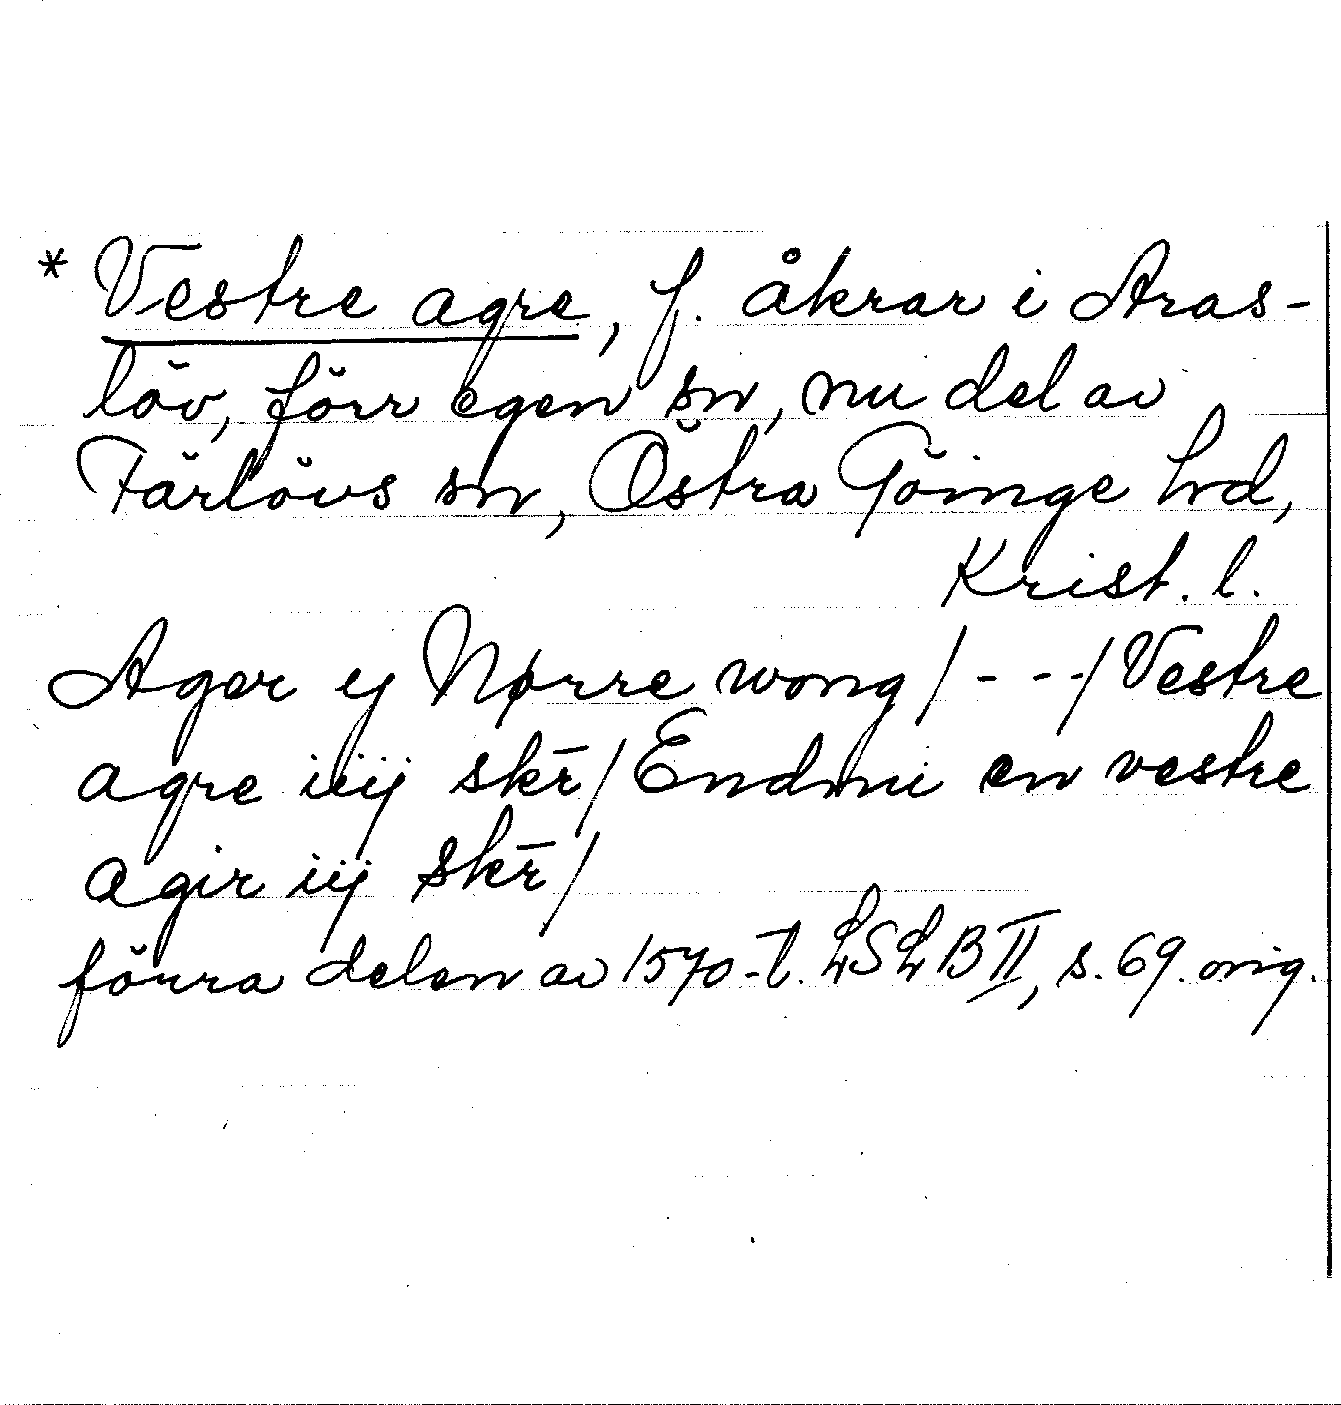 * Vestre agre, f. åkrar i Aras-
löv, förr egen sn, nu del av
Färlövs sn, Östra Göinge hd,
Krist. l.
Ager ij Nørre wong / - - - / Vestre
agre iiij skr̄ / Endnu en vestre
agir iij skr̄ /
förra delen av 1570-t. LSLB II, s. 69. orig.